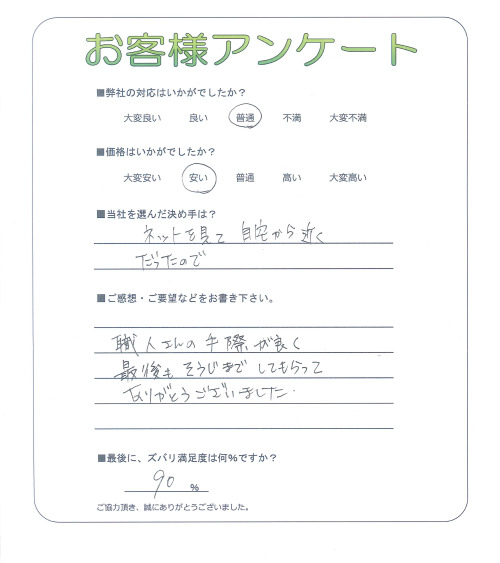 お客様アンケート
■弊社の対応はいかがでしたか?
大変良い 良い 普通 不満 大変不満
■価格はいかがでしたか?
大変安い 安い 普通 高い 大変高い
■当社を選んだ決め手は?
ネットを見て 自宅から近く
だったので
■ご感想・ご要望などをお書き下さい。
職人さんの手際が良く
最後も そうじまで してもらって
ありがとうございました.
■最後に、ズバリ満足度は何%ですか?
90 %
ご協力頂き、誠にありがとうございました。